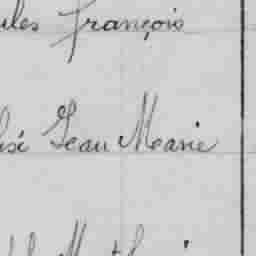 ules françois
isé Jean Marie